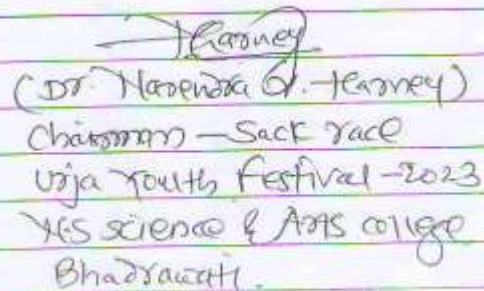 Harney
(Dr. Narendra G. Harney)
Chairman - Sack race
Urja Youth Festival - 2023
YES science & Arts college
Bhadrawati.